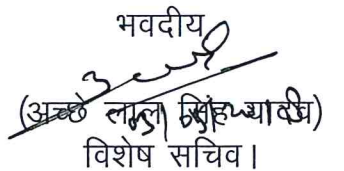 भवदीय
(अच्छे लाल सिंह यादव)
विशेष सचिव।